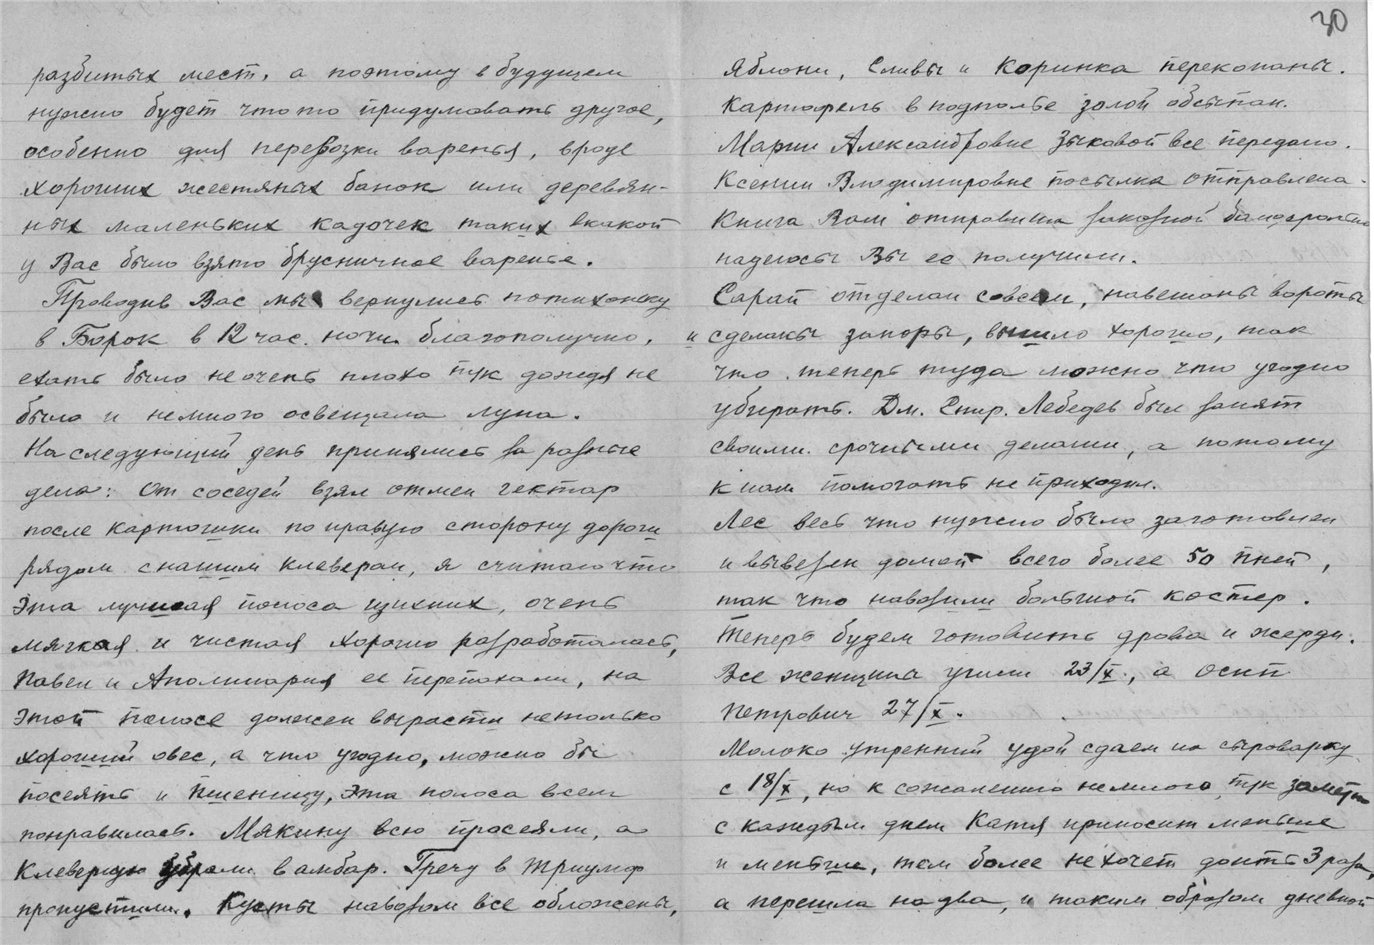 разбитых мест, а поэтому в будущем
нужно будет что то придумовать другое,
особенно для перевозки варенья, вроде
хороших жестяных банок или деревян-
ных маленьких кадочек таких вкакой
у Вас было взято брусничное варенье.
Проводив Вас мы вернулись потихоньку
в Борок в 12 час. ночи благополучно,
ехать было не очень плохо тук дождя не
было и немного освещала луна.
На следующий день принялись за разные
дела: От соседей взял отмеч гектар
после картошки по правую сторону дороги
рядом с нашим клевером, я считаю что
Эта лучшая полоса ихних, очень
мягкая и чистая хорошо разработалась,
Павел и Аполинария ее перепахали, на
Этой полосе должен вырасти нетолько
хороший овес, а что угодно, можно бы
посеять и пшеницу, Эта полоса всем
понравилась. Мякину всю просеяли, а
Клеверную убрали в амбар. Гречу в триумф
пропустили. Кусты навозом все обложены,
30
Яблони, Сливы и Коринка перекопаны.
Картофель в подполье золой обсыпан.
Марии Александровне Зыковой все передано.
Ксении Владимировне посылка отправлена.
Книга Вам отправлена заказной бандеролью
надеюсь Вы ее получили.
Сарай отделан совсем, навешаны вороты
и сделаны запоры, вышло хорошо, так
что теперь туда можно что угодно
убирать. Дм. Спир. Лебедев был занят
своими срочными делами, а потому
к нам помогать не приходил.
Лес весь что нужно было заготовлен
и вывезен домой всего более 50 пней,
так что навозили большой костер.
Теперь будем готовить дрова и жерди.
Все женщина ушли 23/X, а Осип
Петрович 27/X.
Молоко утренний удой сдаем на сыроварку
с 18/X, но к сожалению немного, тук
с каждым днем Катя приносит меньше
и меньше, тем более не хочет доить 3 раза,
а перешла на два, и таким образом дневной